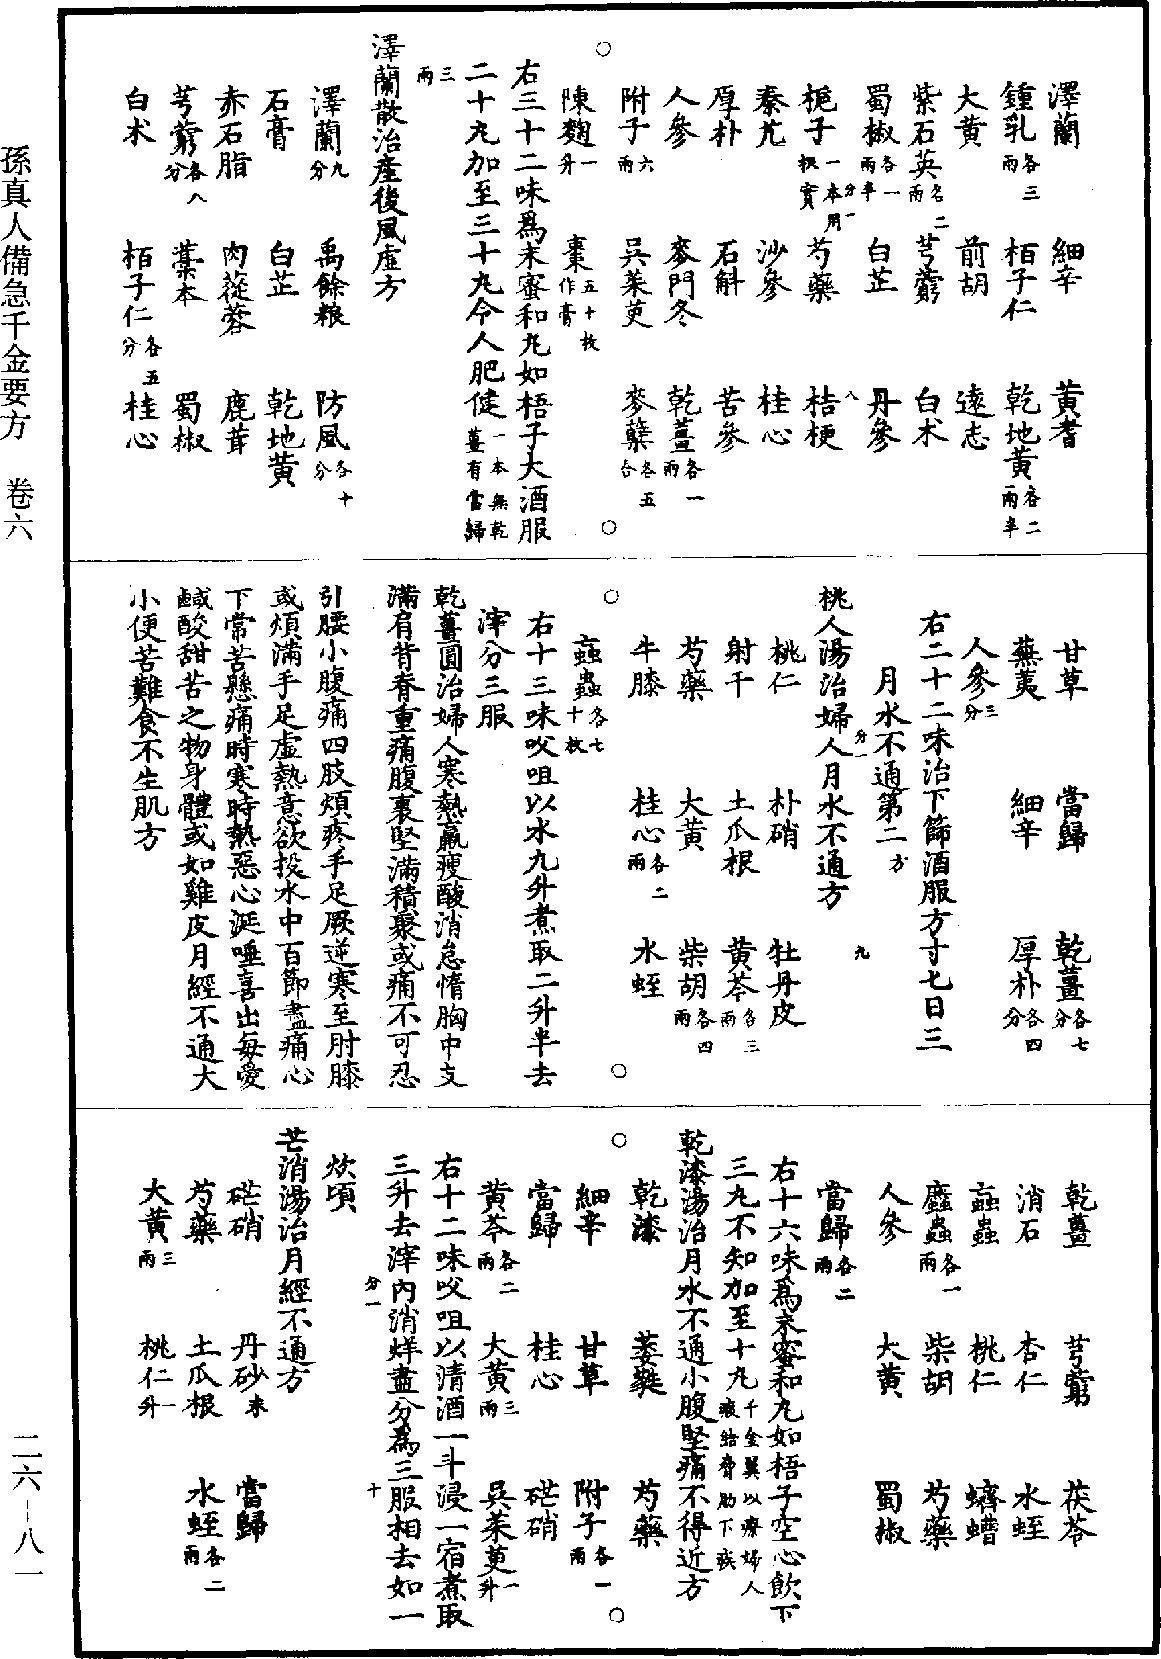 澤蘭 細辛 黃耆
鍾乳各三兩 栢子仁 乾地黃各二兩半
大黃 前胡 遠志
紫石英各二兩 芎藭 白术
蜀椒各一兩半 白芷 丹參
梔子一分一本用枳實 芍藥 桔梗
秦艽 沙參 桂心
厚朴 石斛 苦參
人參 麥門冬 乾薑各一兩
附子六兩 吳茱萸 麥糵各五合
陳麴一升 棗五十枚作膏
右三十二味爲末蜜和丸如梧子大酒服
二十丸加至三十丸令人肥健一本無乾薑有當歸三兩
澤蘭散治產後風虛方
澤蘭九分 禹餘粮 防風各十分
石膏 白芷 乾地黃
赤石脂 肉蓯蓉 鹿茸
芎藭各八分 藁本 蜀椒
白术 栢子仁各五分 桂心
甘草 當歸 乾薑各七分
蕪荑 細辛 厚朴各四分
人參三分
右二十二味治下篩酒服方寸七日三
月水不通第二方
桃人湯治婦人月水不通方
桃仁 朴硝 牡丹皮
射干 土瓜根 黃芩各三兩
芍藥 大黃 柴胡各四兩
牛膝 桂心各二兩 水蛭
蝱蟲各七十枚
右十三味㕮咀以水九升煮取二升半去
滓分三服
乾薑圓治婦人寒熱羸瘦酸消怠惰胸中支
滿肩背脊重痛腹裏堅滿積聚或痛不可忍
引腰小腹痛四肢煩疼手足厥逆寒至肘膝
或煩滿手足虛熱意欲投水中百節盡痛心
下常苦懸痛時寒時熱惡心涎唾喜出每愛
鹹酸甜苦之物身體或如雞皮月經不通大
小便苦難食不生肌方
乾薑 芎藭 茯苓
消石 杏仁 水蛭
蝱蟲 桃仁 蠐螬
䗪蟲各一兩 柴胡 芍藥
人參 大黃 蜀椒
當歸各二兩
右十六味爲末蜜和丸如梧子空心飲下
三丸不知加至十丸千金翼以療婦人瘕結脅肋下疾
乾漆湯治月水不通小腹堅痛不得近方
乾漆 萎蕤 芍藥
細辛 甘草 附子各一兩
當歸 桂心 硭硝
黃芩各二兩 大黃三兩 吳茱萸一升
右十二味㕮咀以清酒一斗浸一宿煮取
三升去滓內消烊盡分爲三服相去如一
炊頃
芒消湯治月經不通方
硭硝 丹砂末 當歸
芍藥 土瓜根 水蛭各二兩
大黃三兩 桃仁一升
孫真人備急千金要方 卷六
二六-八一